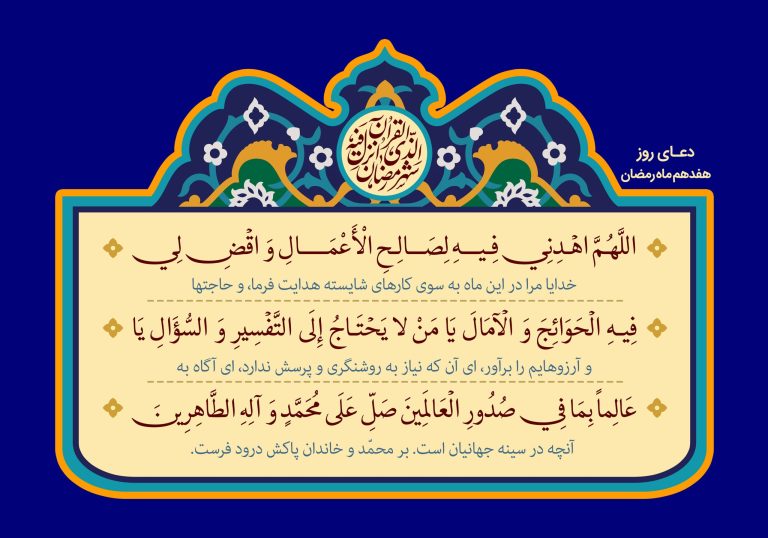 شهر رمضان الذی انزل فیه القرآن
دعـای روز
هفدهم ماه رمضان
اللَّهُمَّ اهْدِنِي فِيهِ لِصَالِحِ الْأَعْمَالِ وَ اقْضِ لِي
خدایا مرا در این ماه به سوی کارهای شایسته هدایت فرما، و حاجتها
فِيهِ الْحَوَائِجَ وَ الْآمَالَ يَا مَنْ لا يَحْتَاجُ إِلَى التَّفْسِيرِ وَ السُّؤَالِ يَا
و آرزوهایم را برآور، ای آن که نیاز به روشنگری و پرسش ندارد، ای آگاه به
عَالِماً بِمَا فِي صُدُورِ الْعَالَمِينَ صَلِّ عَلَى مُحَمَّدٍ وَ آلِهِ الطَّاهِرِينَ
آنچه در سینه جهانیان است. بر محمّد و خاندان پاکش درود فرست.